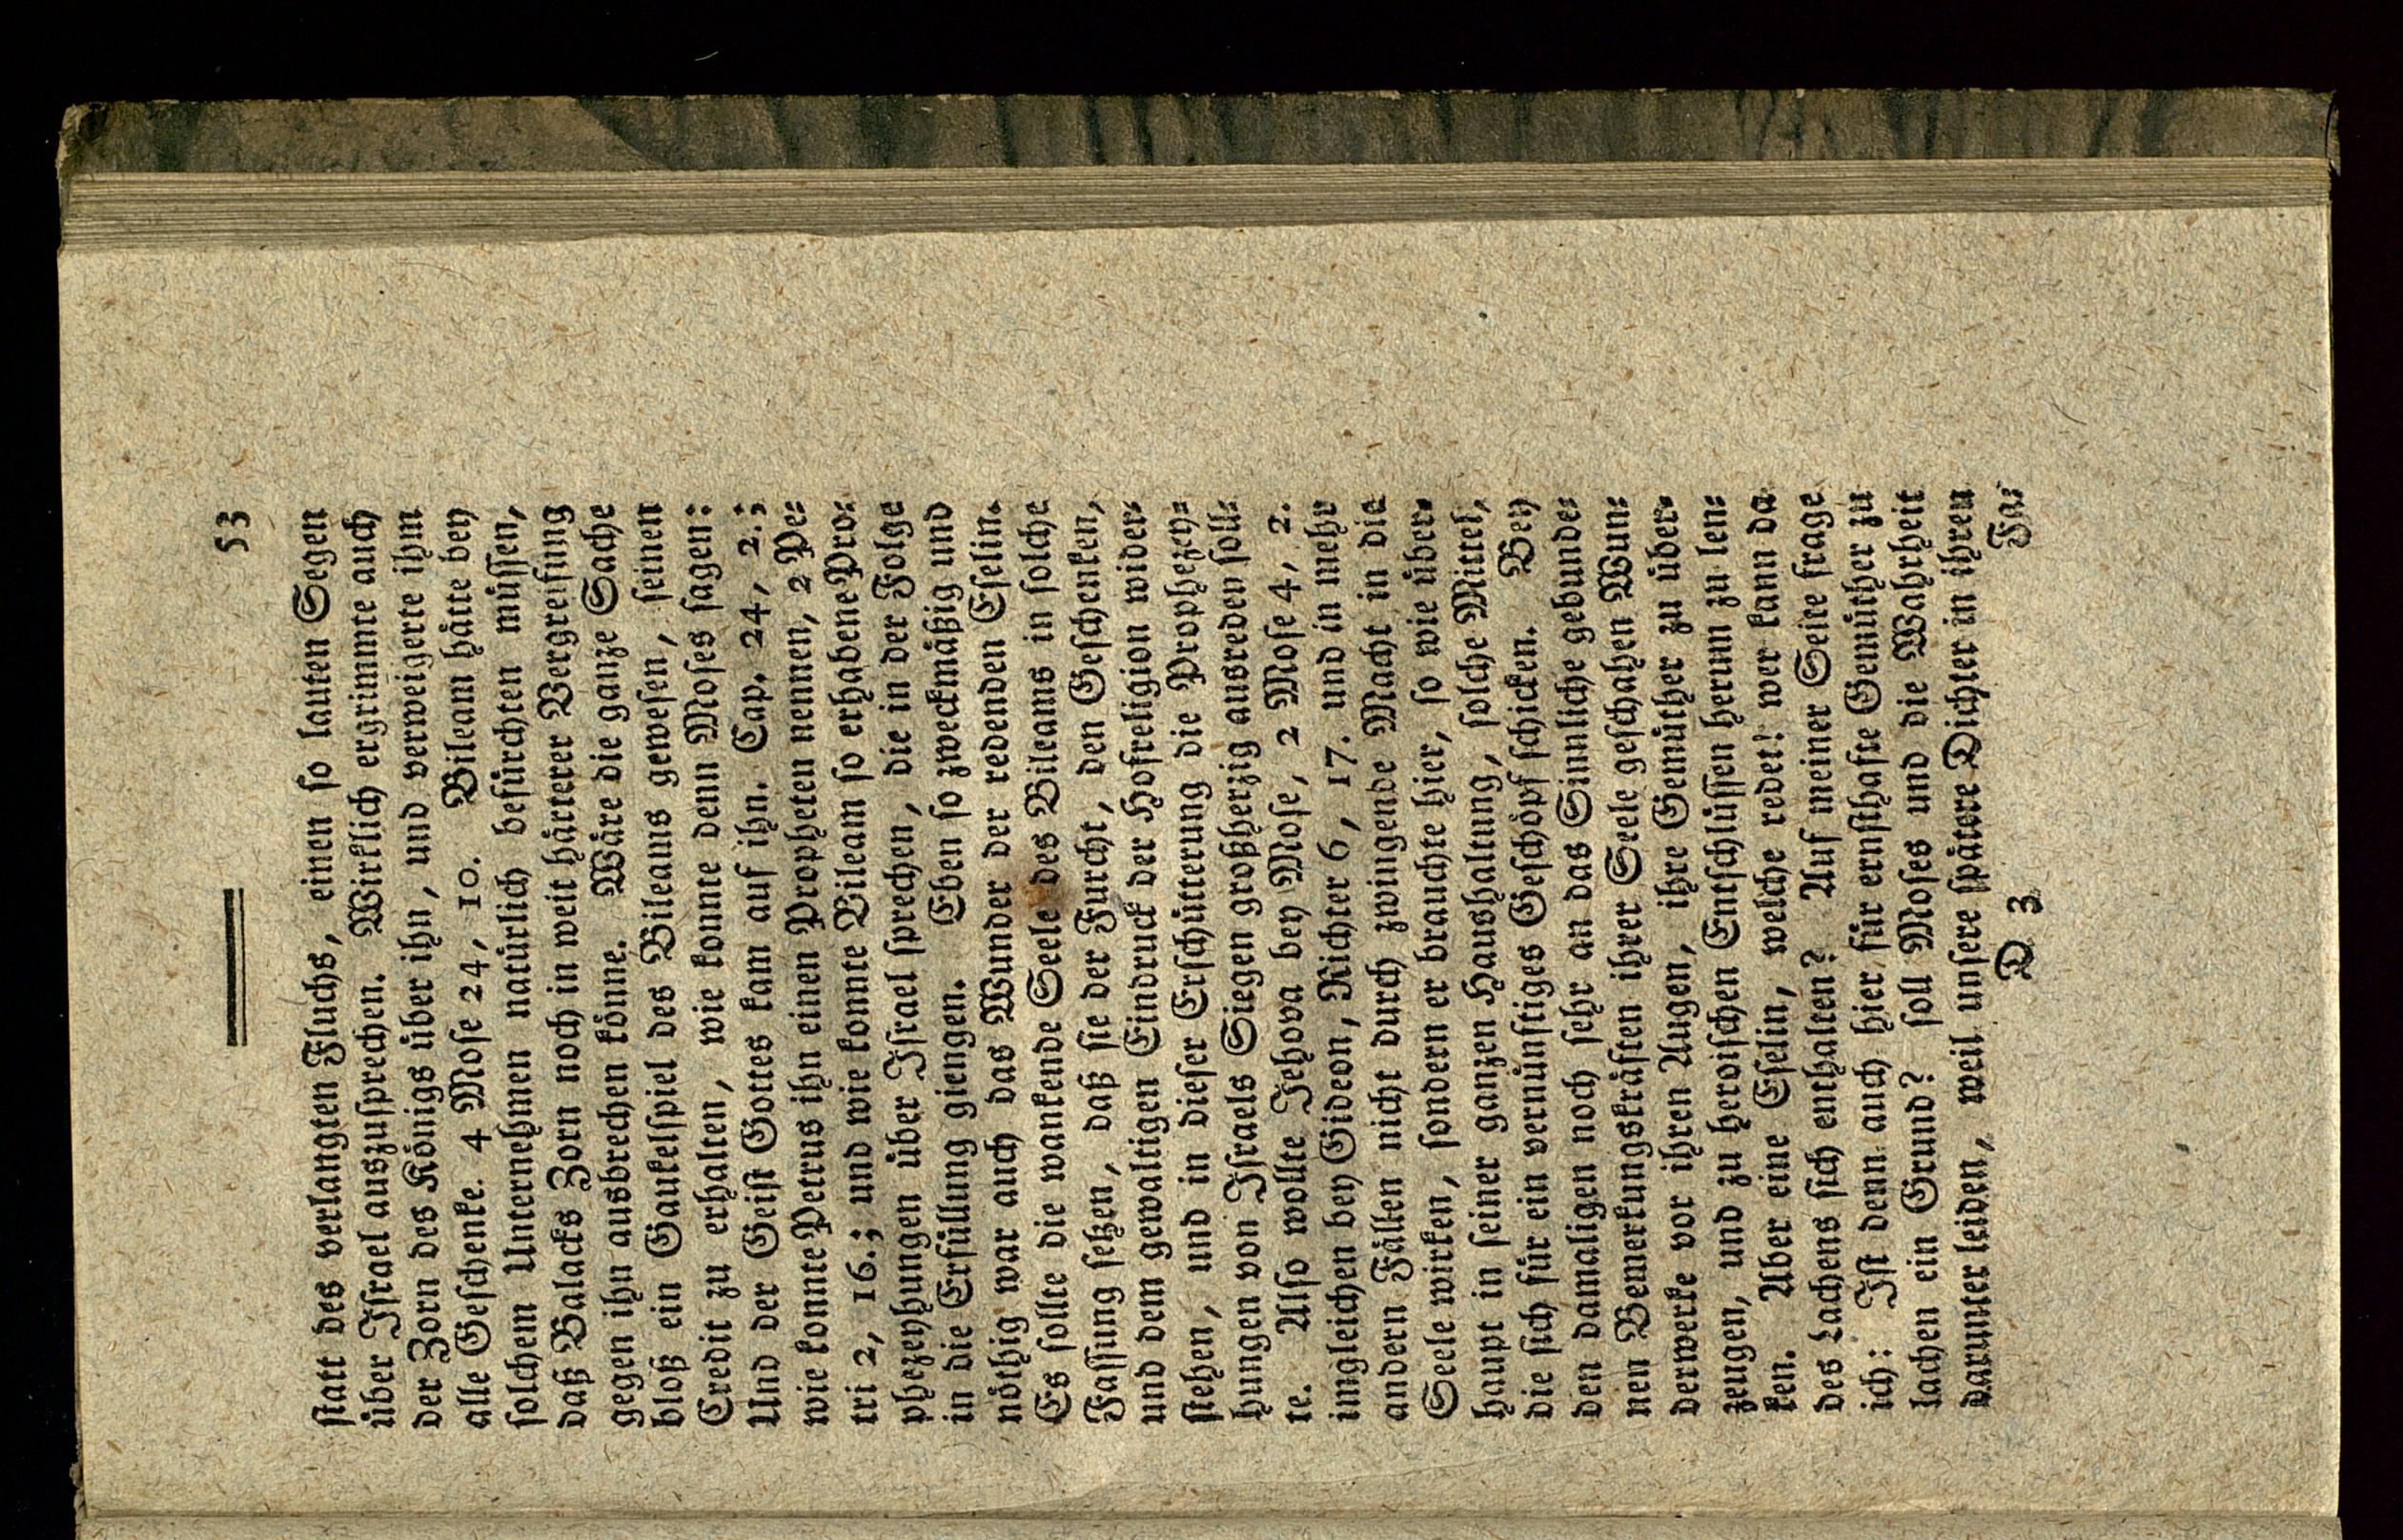 53
statt des verlangten Fluchs, einen so lauten Segen
über Israel auszusprechen. Wirklich ergrimmte auch
der Zorn des Königs über ihn, und verweigerte ihm
alle Geschenke. 4 Mose 24, 10. Bileam hätte bey
solchem Unternehmen natürlich befürchten müssen,
daß Balacks Zorn noch in weit härterer Vergreifung
gegen ihn ausbrechen könne. Wäre die ganze Sache
bloß ein Gaukelspiel des Bileams gewesen, seinen
Credit zu erhalten, wie konnte denn Moses sagen:
Und der Geist Gottes kam auf ihn. Cap. 24, 2.;
wie konnte Petrus ihn einen Propheten nennen, 2 Pe-
tri 2, 16.; und wie konnte Bileam so erhabene Pro-
phezeyhungen über Israel sprechen, die in der Folge
in die Erfüllung giengen. Eben so zweckmäßig und
nöthig war auch das Wunder der redenden Eselin.
Es sollte die wankende Seele des Bileams in solche
Fassung setzen, daß sie der Furcht, den Geschenken,
und dem gewaltigen Eindruck der Hofreligion wider-
stehen, und in dieser Erschütterung die Prophezey-
hungen von Israels Siegen großherzig ausreden soll-
te. Also wollte Jehova bey Mose, 2 Mose 4, 2.
imgleichen bey Gideon, Richter 6, 17. und in mehr
andern Fällen nicht durch zwingende Macht in die
Seele wirken, sondern er brauchte hier, so wie über-
haupt in seiner ganzen Haushaltung, solche Mittel,
die sich für ein vernünftiges Geschöpf schicken. Bey
den damaligen noch sehr an das Sinnliche gebunde-
nen Bemerkungskräften ihrer Seele geschahen Wun-
derwerke vor ihren Augen, ihre Gemüther zu über-
zeugen, und zu heroischen Entschlüssen herum zu len-
ken. Aber eine Eselin, welche redet! wer kann da
des Lachens sich enthalten? Auf meiner Seite frage
ich: Ist denn auch hier für ernsthafte Gemüther zu
lachen ein Grund? soll Moses und die Wahrheit
darunter leiden, weil unsere spätere Dichter in ihren
D 3 Fa-